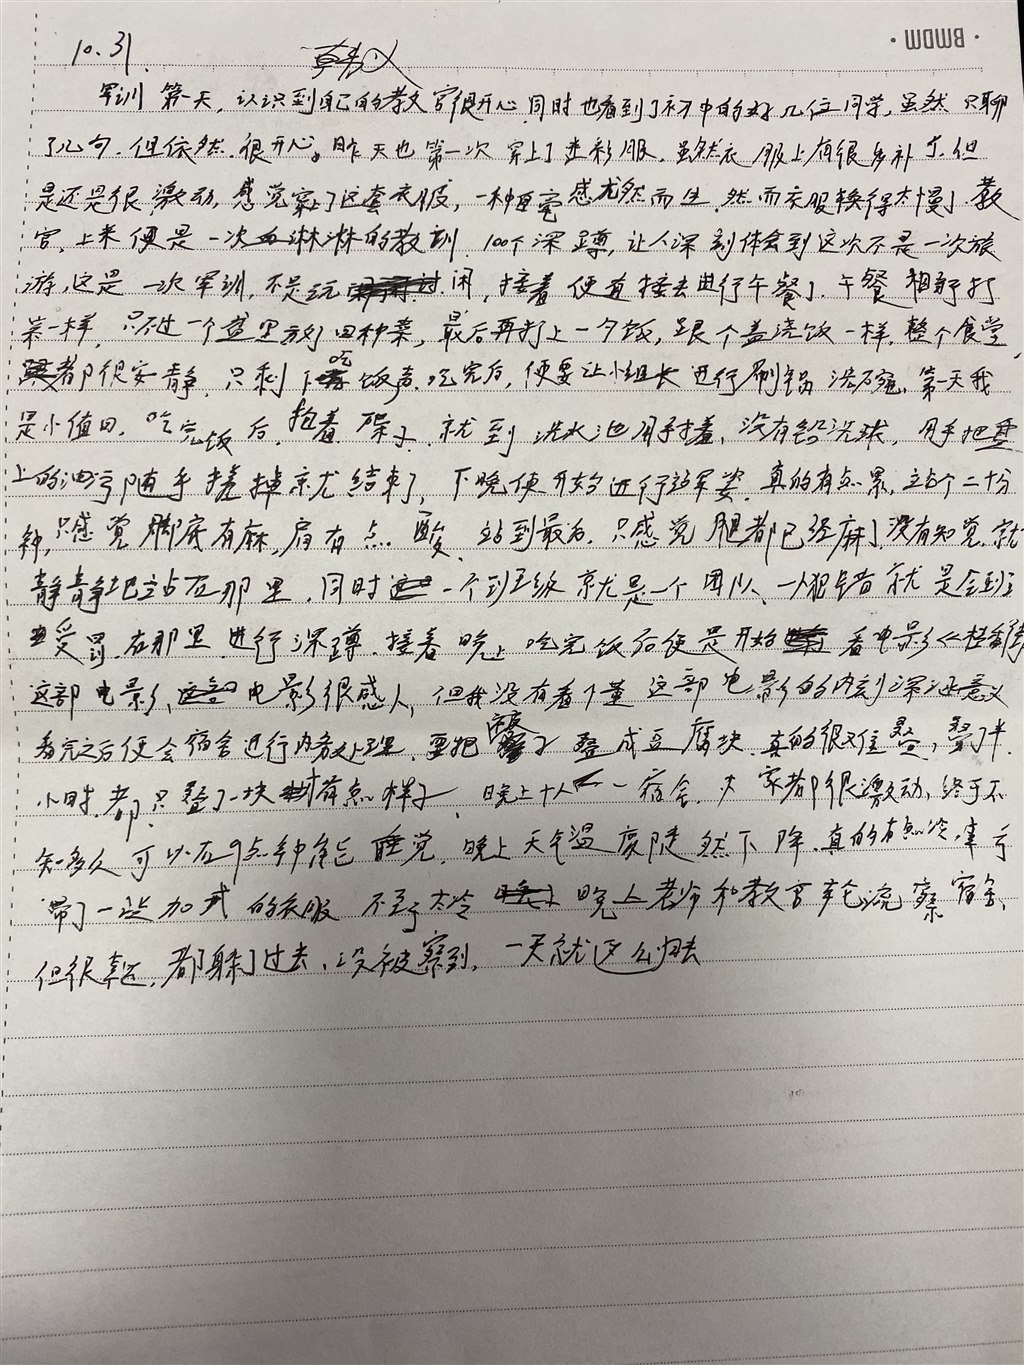 BMDM
10.31
军训第一天,认识到自己的教官很开心,同时也看到了初中的好几位同学,虽然只聊
了几句.但依然.很开心。昨天也第一次穿上了迷彩服.虽然衣服上有很多补丁.但
是还是很激动,感觉穿上了这套衣服,一种 感尤然而生.然而衣服换得太慢了.教
官,上来便是一次血淋淋的教训.100个深蹲,让人深刻体会到这次不是一次旅
游,这是一次军训,不是玩 闲,接着便直接去进行午餐了.午餐 打
菜一样,只不过一个盘里放了四种菜,最后再打上一勺饭,跟个盖浇饭一样,整个食堂,
都很安静.只剩下吃饭声.吃完后,便要让小组长进行刷锅洗碗.第一天我
是小值日.吃完饭后,抱着 子.就到洗水池用手搓,没有铅洗球,用手把
上的油污随手搓掉就尤结束了,下晚便开始进行站军姿.真的有点累,站个二十分
钟,只感觉脚底有麻,肩有点 酸.站到最后.只感觉腿都已经麻了没有知觉.就
静静地站在那里.同时 一个班级就是一个团队、一人犯错就是全班
受罚.在那里进行深蹲.接着晚上吃完饭后便是开始 看电影《
这部电影, 电影很感人,但我没有看懂这部电影的内刻深 意义
看完之后便会宿舍进行内务处理.要把被子叠成豆腐块.真的很难 叠,叠了半.
小时.都.只叠了一块 有点样子.晚上十人一宿舍.大家都很激动,终于不
知多久可以在9点钟能睡觉.晚上天气温度陡然下降.真的有点冷.幸亏
带了一些加 的衣服 不至于太冷 晚上老师和教官轮流察宿舍、
但很幸运,都躲了过去、没被察到.一天就这么 去